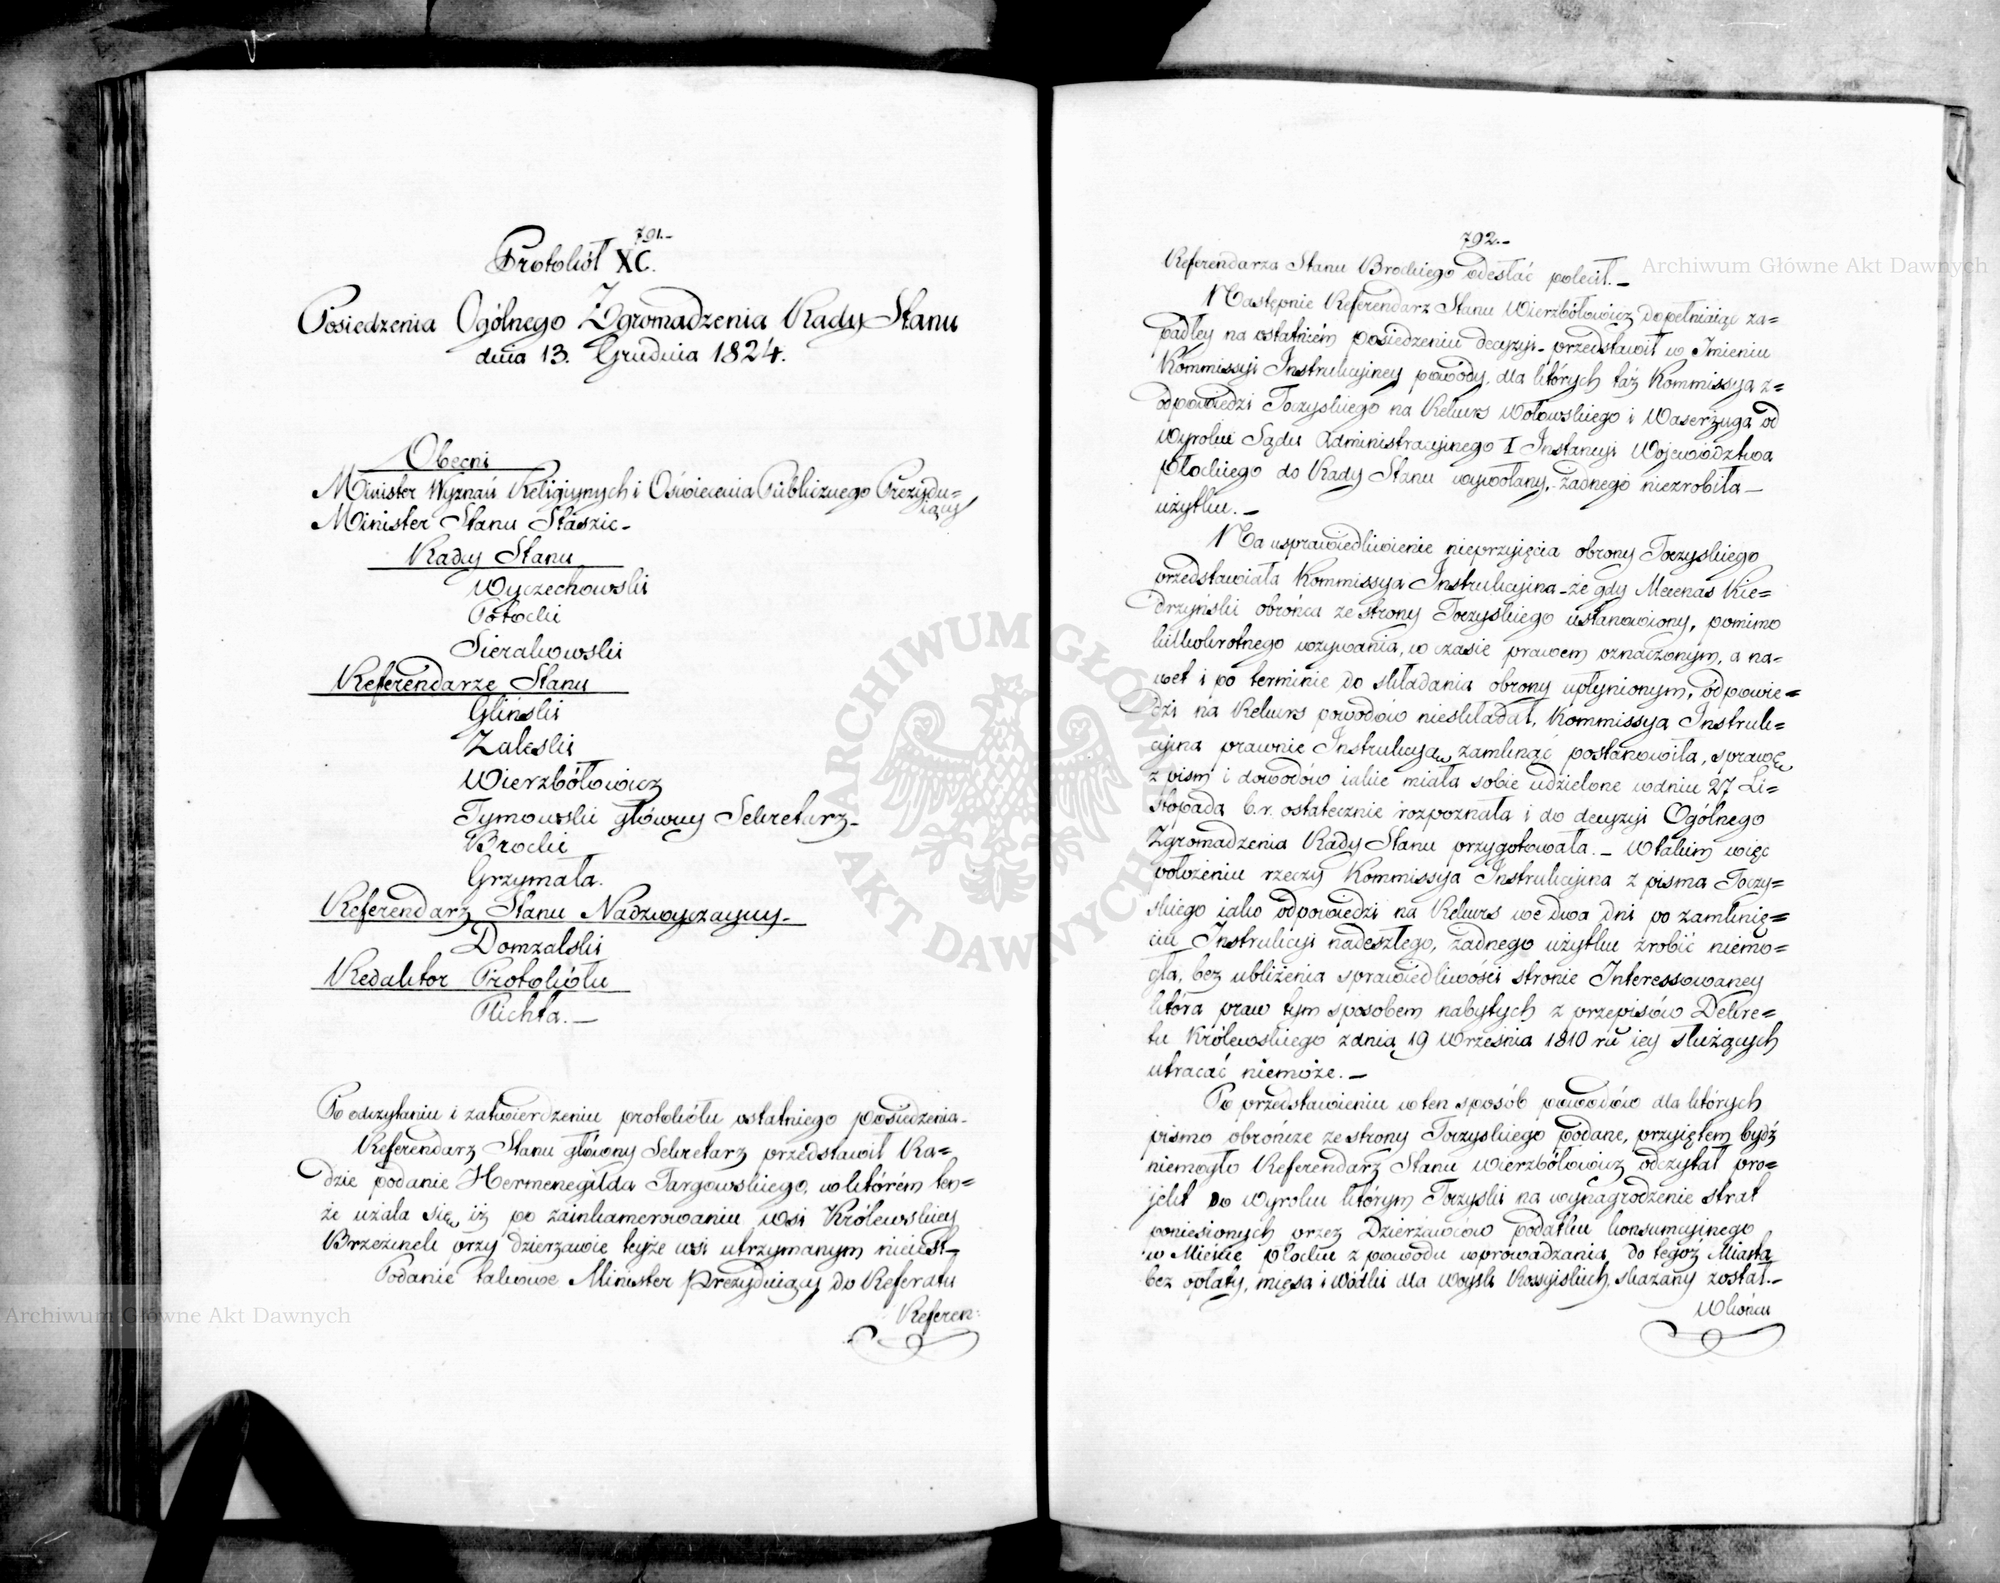 791.
Protokół XC.
Posiedzenia Ogólnego Zgromadzenia Rady Stanu
dnia 13. Grudnia 1824.
Obecni
Minister Wyznań Religijnych i Oświecenia Publicznego Prezydu=
iący
Minister Stanu Staszic.
Radcy Stanu
Wyczechowski
Potocki
Sierakowski
Referendarze Stanu
Glinski
Zaleski
Wierzbółowicz
Tymowski główny Sekretarz.
Brocki
Grzymała.
Referendarz Stanu Nadzwyczayny.
Domzalski
Redaktor Protokółu
Plichta.
Po odczytaniu i zatwierdzeniu protokółu ostatniego posiedzenia.
Referendarz Stanu główny Sekretarz przedstawił Ra=
dzie podanie Hermenegilda Targowskiego, w którém ten=
że użala się iż po zainkamerowaniu wsi Królewskiey
Brzezinek przy dzierzawie teyże wsi utrzymanym nieiest.
Podanie takowe Minister Prezyduiący do Referatu
Referen:
792.
Referendarza Stanu Brockiego odesłać polecił.
Następnie Referendarz Stanu Wierzbółowicz dopełniaiąc za=
padłey na ostatniém posiedzeniu decyzyi przedstawił w Imieniu
Kommissyi Instrukcyiney powody, dla których taż Kommissya z
odpowiedzi Toczyskiego na Rekurs Wołowskiego i Waserzuga od
Wyroku Sądu Administracyinego I Instancyi Województwa
Płockiego do Rady Stanu wywołany, żadnego niezrobiła
użytku.
Na usprawiedliwienie nieprzyięcia obrony Toczyskiego
przedstawiała Kommissya Instrukcyina że gdy Mecenas Kie=
drzyński obrońca ze strony Toczyskiego ustanowiony, pomimo
kilkokrotnego wzywania, w czasie prawem oznaczonym, a na=
wet i po terminie do składania obrony upłynionym, odpowie=
dzi na Rekurs powodów nieskładał, Kommissya Instruk=
cyina prawnie Instrukcyą zamknąć postanowiła, sprawę
z pism i dowodów iakie miała sobie udzielone w dniu 27 Li=
stopada b.r. ostatecznie rozpoznała i do decyzyi Ogólnego
Zgromadzenia Rady Stanu przygotowała. W takim więc
położeniu rzeczy Kommissya Instrukcyina z pisma Toczy=
skiego iako odpowiedzi na Rekurs we dwa dni po zamknię=
ciu Instrukcyi nadeszłego, żadnego użytku zrobić niemo=
gła, bez ubliżenia sprawiedliwości stronie Interessowaney
która praw tym sposobem nabytych z przepisów Dekre=
tu Królewskiego z dnia 19 Września 1810 ru iey służących
utracać niemoże.
Po przedstawieniu w ten sposób powodów dla których
pismo obrończe ze strony Toczyskiego podane, przyiętem bydź
niemogło Referendarz Stanu Wierzbółowicz odczytał pro=
jekt do wyroku którym Toczyski na wynagrodzenie strat
poniesionych przez Dzierżawców podatku konsumcyinego
w Mieście Płocku z powodu wprowadzania do tegoż Miasta
bez opłaty, mięsa i wódki dla woysk Rossyiskich, skazany został.
W końcu